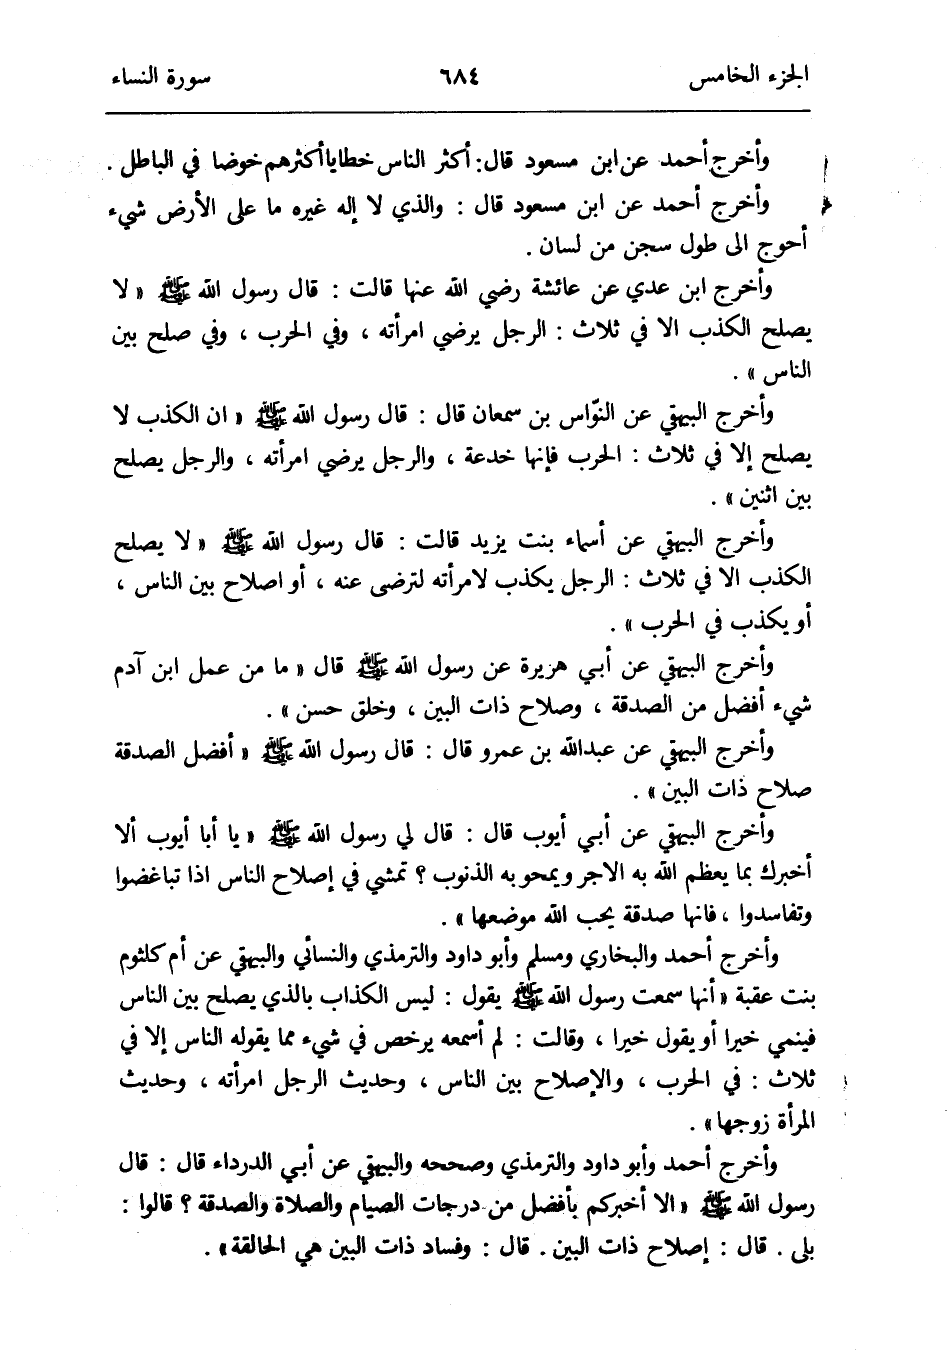 الجزء الخامس ٦٨٤ سورة النساء
وأخرج أحمد عن ابن مسعود قال: أكثر الناس خطايا أكثرهم خوضا في الباطل .
وأخرج أحمد عن ابن مسعود قال : والذي لا إله غيره ما على الأرض شيء
أحوج الى طول سجن من لسان .
وأخرج ابن عدي عن عائشة رضي الله عنها قالت : قال رسول الله ﷺ « لا
يصلح الكذب الا في ثلاث : الرجل يرضي امرأته ، وفي الحرب ، وفي صلح بين
الناس » .
وأخرج البيهقي عن النوّاس بن سمعان قال : قال رسول الله ﷺ « ان الكذب لا
يصلح إلا في ثلاث : الحرب فإنها خدعة ، والرجل يرضي امرأته ، والرجل يصلح
بين اثنين » .
وأخرج البيهقي عن أسماء بنت يزيد قالت : قال رسول الله ﷺ « لا يصلح
الكذب الا في ثلاث : الرجل يكذب لامرأته لترضى عنه ، أو اصلاح بين الناس ،
أو يكذب في الحرب » .
وأخرج البيهقي عن أبي هريرة عن رسول الله ﷺ قال « ما من عمل ابن آدم
شيء أفضل من الصدقة ، وصلاح ذات البين ، وخلق حسن » .
وأخرج البيهقي عن عبدالله بن عمرو قال : قال رسول الله ﷺ « أفضل الصدقة
صلاح ذات البين » .
وأخرج البيهقي عن أبي أيوب قال : قال لي رسول الله ﷺ « يا أبا أيوب ألا
أخبرك بما يعظم الله به الاجر ويمحو به الذنوب ؟ تمشي في إصلاح الناس اذا تباغضوا
وتفاسدوا ، فانها صدقة يحب الله موضعها » .
وأخرج أحمد والبخاري ومسلم وأبو داود والترمذي والنسائي والبيهقي عن أم كلثوم
بنت عقبة « أنها سمعت رسول الله ﷺ يقول : ليس الكذاب بالذي يصلح بين الناس
فينمي خيرا أو يقول خيرا ، وقالت : لم أسمعه يرخص في شيء مما يقوله الناس إلا في
ثلاث : في الحرب ، والإصلاح بين الناس ، وحديث الرجل امرأته ، وحديث
المرأة زوجها » .
وأخرج أحمد وأبو داود والترمذي وصححه والبيهقي عن أبي الدرداء قال : قال
رسول الله ﷺ « الا أخبركم بأفضل من درجات الصيام والصلاة والصدقة ؟ قالوا :
بلى . قال : إصلاح ذات البين . قال : وفساد ذات البين هي الحالقة » .